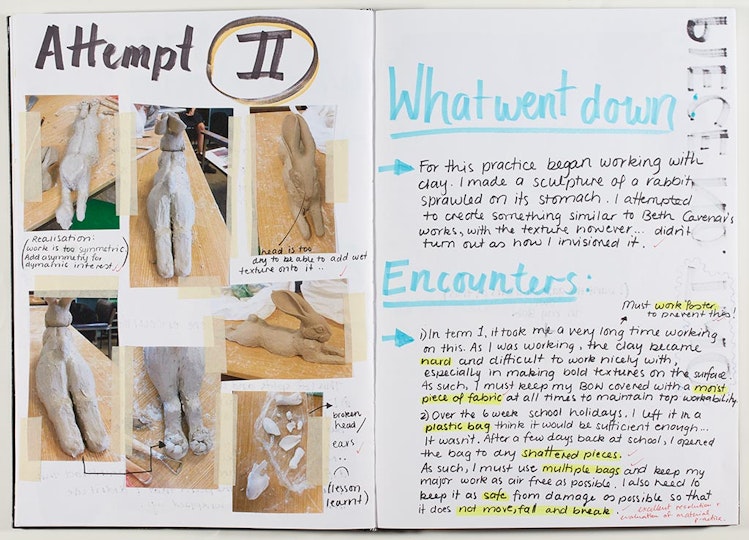 Attempt II
Realisation:
(work is too symmetric)
Add asymmetry for
dynamic interest.
head is too
dry to be able to add wet
texture onto it..
broken
head/
ears
(lesson
learnt)
What went down:
For this practice began working with
clay. I made a sculpture of a rabbit
sprawled on its stomach. I attempted
to create something similar to Beth Cavener's
works, with the texture however... didn't
turn out as how I invisioned it.
Encounters:
Must work faster
to prevent this!
1) In term 1, it took me a very long time working
on this. As I was working, the clay became
hard and difficult to work nicely with,
especially in making bold textures on the surface
As such, I must keep my BOW covered with a moist
piece of fabric at all times to maintain top workability
2) Over the 6 week school holidays, I left it in a
plastic bag think it would be sufficient enough...
It wasn't. After a few days back at school, I opened
the bag to dry shattered pieces.
As such, I must use multiple bags and keep my
major work as air free as possible. I also need to
keep it as safe from damage as possible so that
it does not move, fall and break.
excellent resolution +
evaluation of material
practice.